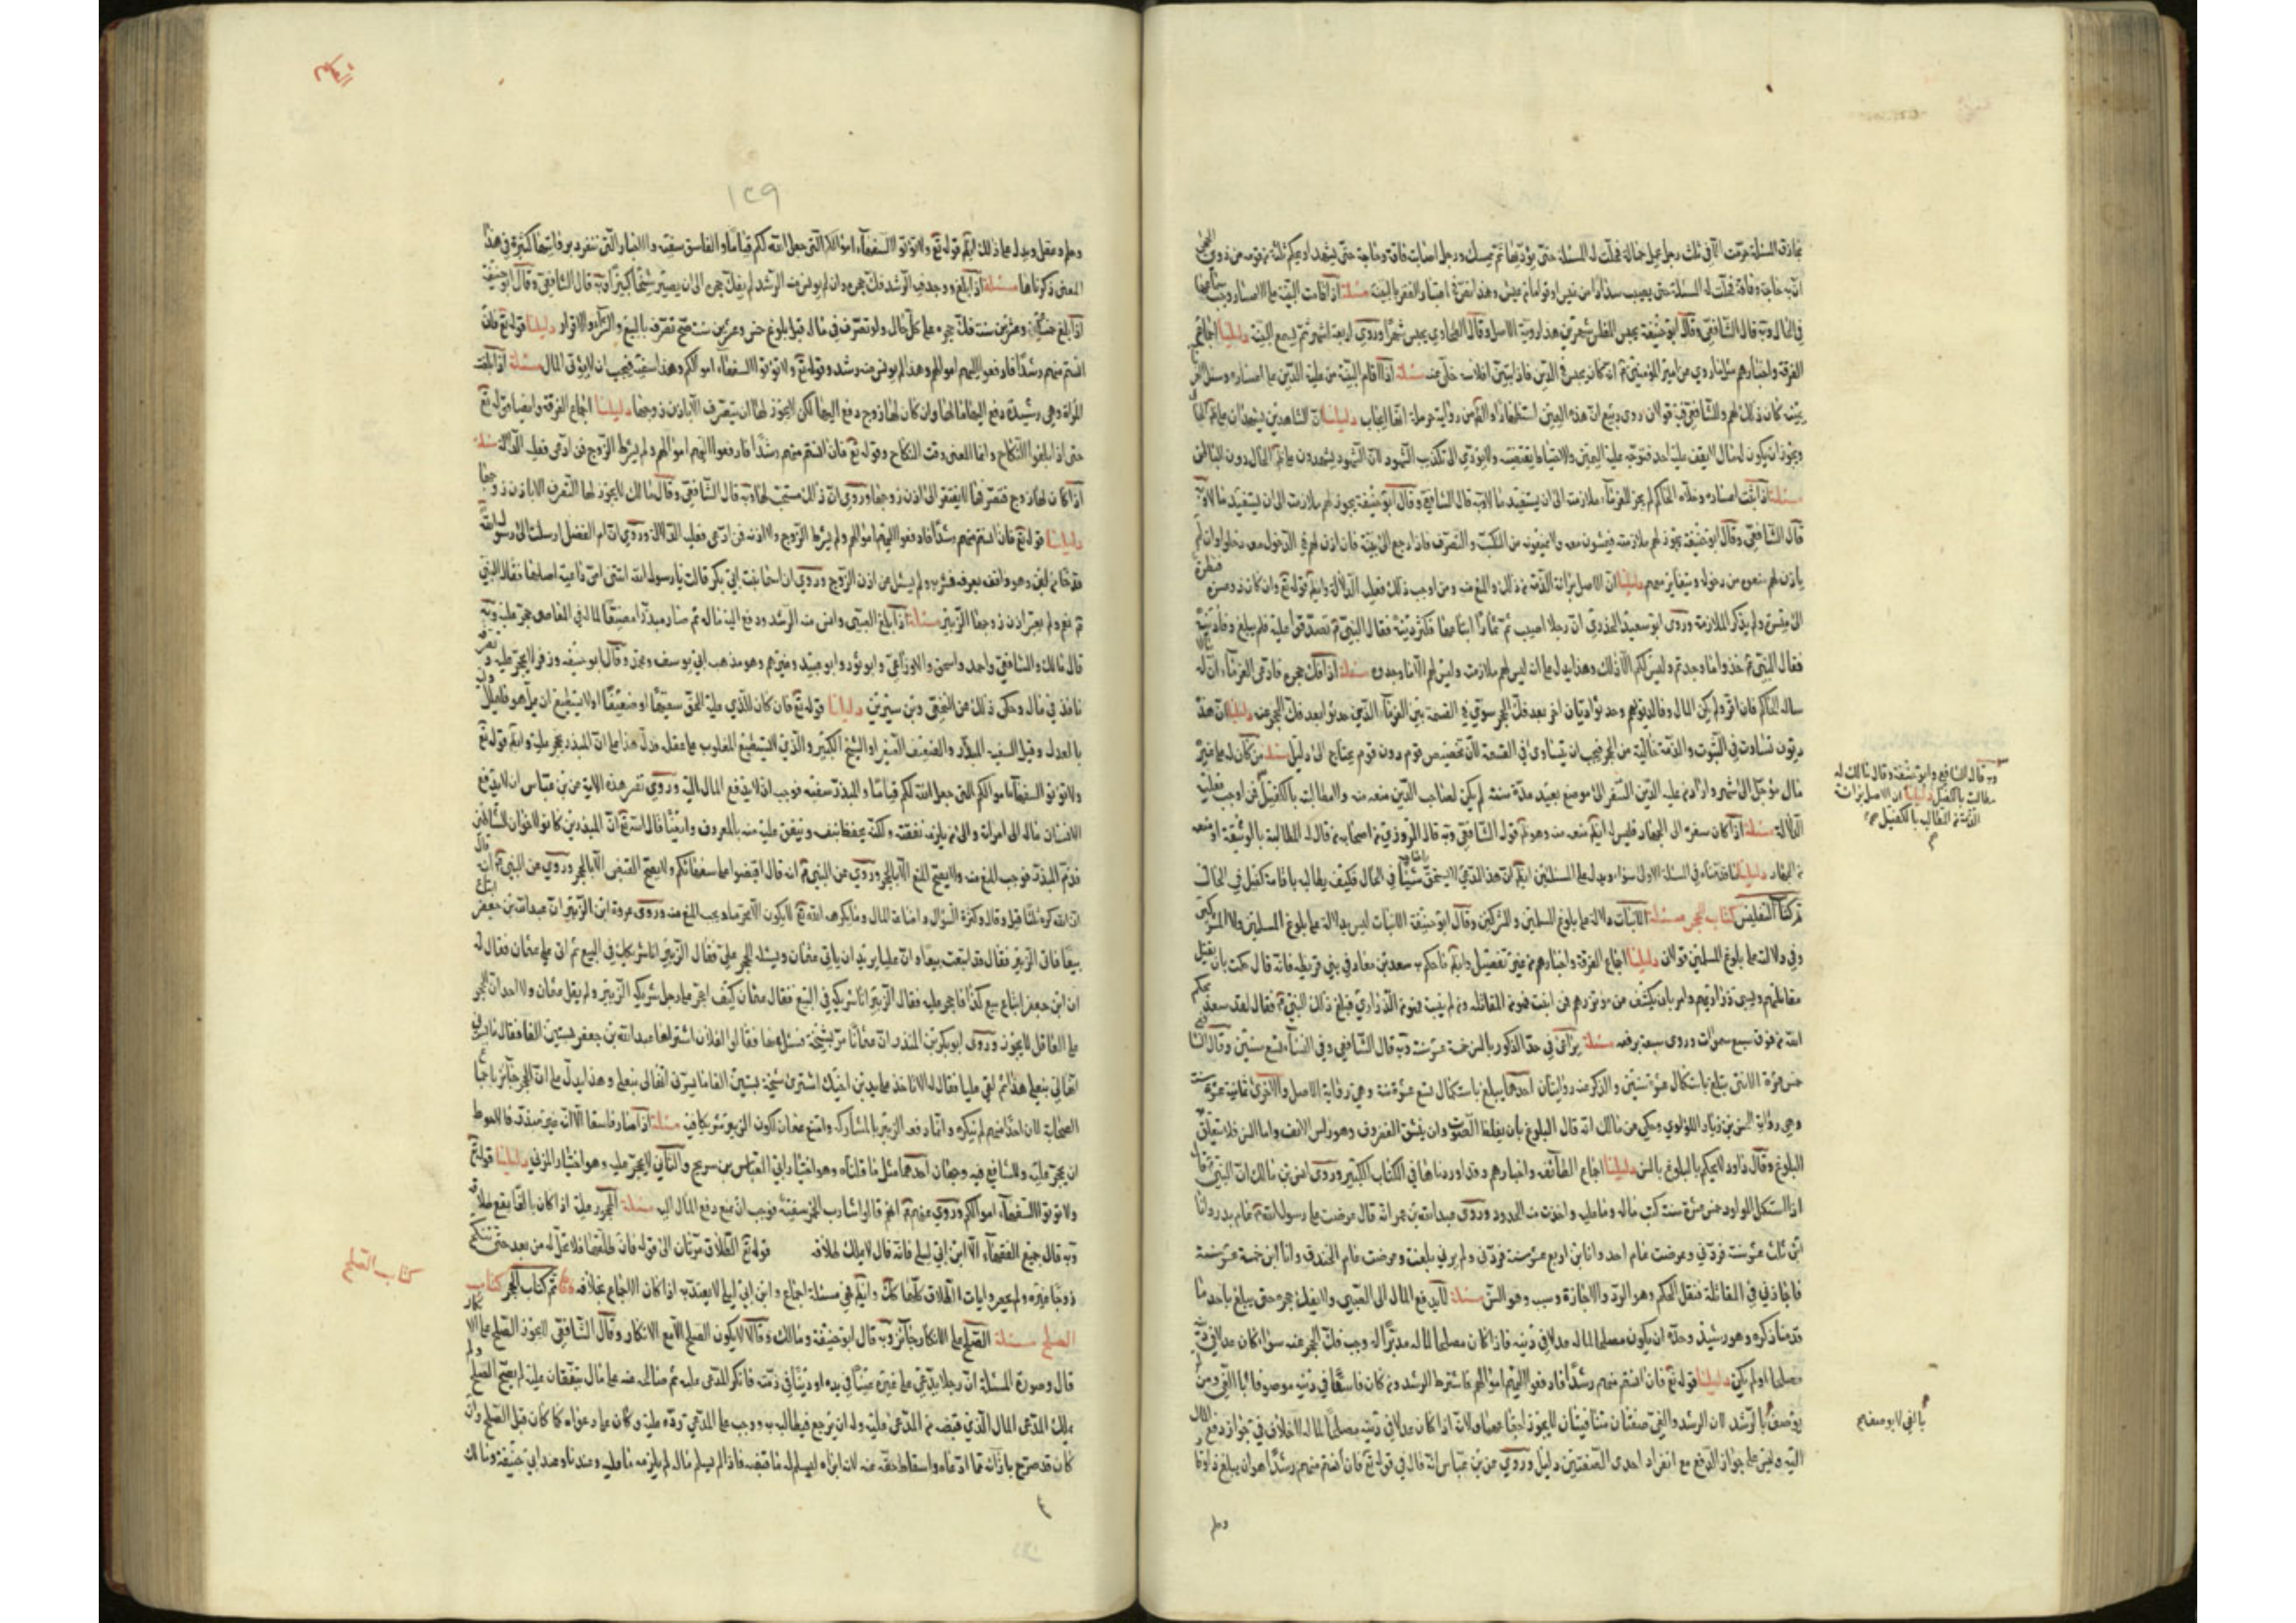 المسئلة حرمت الا في ثلث رجل تحمل حمالة فحلت له المسئلة حتى يؤديها ثم يمسك ورجل اصابت فاقة وحاجة حتى يشهد او يحكم ثلثة من قومه من ذوي الحجى
ان به حاجة وفاقة فحلت له المسئلة حتى يصيب سدادا من عيش او قواما من عيش وهذا نص في اعتبار الفقر بالبينة مسئلة اذا قامت البينة على الاعسار وجب سماعها
في الحال وبه قال الشافعي وقال ابو حنيفة يحبس المفلس شهرين هذا رواية الاصل وقال الطحاوي يحبس شهرا وروي اربعة اشهر ثم يسمع البينة دليلنا اجماع
الفرقة واخبارهم مثل ما روي عن امير المؤمنين انه كان يحبس في الدين فاذا تبين افلاسه خلى عنه مسئلة اذا اقام البينة من عليه الدين على اعساره وسئل الغرماء
يمينه كان ذلك لهم وللشافعي فيه قولان روى ربيع ان هذه اليمين استظهارا من رواية حرملة انها ايجاب دليلنا ان الشاهدين يشهدان على ظاهر الحال
ويجوز ان يكون له مال لا يقف عليه احد فتوجه عليه اليمين والاحتياط يقتضيه ولا يؤدي الى تكذيب الشهود لان الشهود يشهدون على ظاهر المال دون الباطن
مسئلة اذا ثبت اعساره وخلاه الحاكم لم يجز للغرماء ملازمته الى ان يستفيد مالا وبه قال الشافعي وقال ابو حنيفة يجوز لهم ملازمته الى ان يستفيد مالا وبه
قال الشافعي وقال ابو حنيفة يجوز لهم ملازمته فيمشون معه ولا يمنعونه من التكسب والتصرف فاذا رجع الى بيته فان اذن لهم في الدخول معه دخلوا وان لم
ياذن لهم منعوه من دخوله ويبيت معهم دليلنا ان الاصل براءة الذمة من ذلك والمنع منه ومن اوجب ذلك فعليه الدلالة وايضا قوله تع وان كان ذو عسرة فنظرة
الى ميسرة ولم يذكر الملازمة وروى ابو سعيد الخدري ان رجلا اصيب في ثمار ابتاعها فكثر دينه فقال النبي تصدقوا عليه فلم يبلغ وفاء دينه
فقال النبي خذوا ما وجدتم وليس لكم الا ذلك وهذا يدل على ان ليس لهم ملازمته وليس لهم الا ما وجدوه مسئلة اذا فك حجره فادعى الغرماء ان له
مالا ساله الحاكم فان اقر ولم يكن المال وفاء لديونهم وحدثوا ديان اخر بعد فك الحجر سوي في القسمة بين الغرماء الذين حدثوا بعد فك الحجر عنه دليلنا ان هذه
ديون تساوت في الثبوت والذمة خالية من الحجر فيجب ان يتساوى في القسمة لان تخصيص قوم دون قوم يحتاج الى دليل مسئلة من كان له على غيره
مال مؤجل الى شهر واراد من عليه الدين السفر الى موضع بعيد مدة سنة لم يكن لصاحب الدين منعه منه والمطالبة بالكفيل فمن اوجب فعليه
الدلالة مسئلة اذا كان سفره الى الجهاد فليس له ايضا منعه منه وهو قول الشافعي وبه قال المروزي من اصحابه من قال له المطالبة بالوثيقة او منعه
من الجهاد دليلنا ما قدمناه في المسئلة الاولى سواء ويدل على المسئلتين ايضا ان هذا المدعي لا يستحق شيئا في الحال فكيف يطالب باقامة كفيل في الحال
تم كتاب التفليس كتاب الحجر مسئلة الانبات دلالة على بلوغ المسلمين والمشركين وقال ابو حنيفة الانبات ليس بدلالة على بلوغ المسلمين ولا المشركين
وفي دلالته على بلوغ المسلمين قولان دليلنا اجماع الفرقة واخبارهم من غير تفصيل وايضا حكم سعد بن معاذ في بني قريظة فانه قال حكمت بان يقتل
مقاتلهم ويسبى ذراريهم وامر بان يكشف عن مؤتزرهم فمن انبت فهو من المقاتلة ومن لم ينبت فهو من الذراري فبلغ ذلك النبي فقال لقد سعد بحكم
الله من فوق سبع سموات وروى سبعة ارقعه مسئلة يراعى في حد الذكور بالسن خمسة عشر سنة وبه قال الشافعي وفي النساء تسع سنين وقال الشا
خمس عشرة الانثى يبلغ باستكمال عشرة سنين والذكر عنه روايتان احدهما يبلغ باستكمال تسع عشرة سنة وهي رواية الاصل والاخرى ثمانية عشرة سنة
وهي رواية الحسن بن زياد اللؤلؤي وحكي عن مالك انه قال البلوغ بان يغلظ الصوت وان ينشق الغضروف وهو راس الانف واما السن فلا يتعلق
البلوغ وقال داود لا يحكم بالبلوغ بالسن دليلنا اجماع الطائفة واخبارهم وقد اوردناها في الكتاب الكبير وروى انس بن مالك ان النبي قال
اذا استكمل المولود خمس عشرة سنة كتب ماله وما عليه واخذت منه الحدود وروى عبدالله بن عمر انه قال عرضت على رسول الله عام بدر وانا
ابن ثلث عشر سنة فردني وعرضت عام احد وانا ابن اربع عشر سنة فردني ولم يرني بلغت وعرضت عام الخندق وانا ابن خمسة عشر سنة
فاجازني في المقاتلة فنقل الحكم وهو الرد والاجازة وسبب وهو السن مسئلة لا يدفع المال الى الصبي ولا يفك حجره حتى يبلغ باحد ما
قدمنا ذكره وهو رشيد وحده ان يكون مصلحا لماله عدلا في دينه فاذا كان مصلحا لماله مدبرا له وجب فك الحجر عنه سواء كان عدلا في دينه
مصلحا او لم يكن دليلنا قوله تع فان انستم منهم رشدا فادفعوا اليهم اموالهم فاشترط الرشد ومن كان فاسقا في دينه موصوفا بالغي ومن
يوصف بالرشد لان الرشد والغي صفتان متنافيتان لا يجوز اجتماعهما ولانه اذا كان عدلا في دينه مصلحا لماله لا خلاف في جواز دفع المال
اليه وليس على جواز الدفع مع انفراد احدى الصفتين دليل وروي عن بن عباس انه قال في قوله تع فان انستم منهم رشدا هو ان يبلغ ذا وقار
وحلم
وبه قال الشافعي وابو حنيفة وقال مالك له
مطالبته بالكفيل دليلنا ان الاصل براءة
الذمة من المطالب بالكفيل
بالغي لا يوصف
١٢٩
وحلم وعقل ويدل على ذلك ايضا قوله تع ولا تؤتوا السفهاء اموالكم التي جعل الله لكم قياما والفاسق سفيه والاخبار التي ننفرد بروايتها كثيرة في هذا
المعنى ذكرناها مسئلة اذا بلغ ووجد فيه الرشد فك حجره وان لم يونس منه الرشد لم يفك حجره الى ان يصير شيخا كبيرا وبه قال الشافعي وقال ابو حنيفة
اذا بلغ خمسا وعشرين سنة فك حجره على كل حال ولو تصرف في ماله قبل بلوغ خمس وعشرين سنة صح تصرفه بالبيع والشراء والاقرار دليلنا قوله تع فان
انستم منهم رشدا فادفعوا اليهم اموالهم وهذا لم يونس منه رشد وقوله تع ولا تؤتوا السفهاء اموالكم وهذا سفيه فيجب ان لا يؤتى المال مسئلة اذا بلغت
المراة وهي رشيدة دفع اليها مالها وان كان لها زوج دفع اليها لكن لا يجوز لها ان يتصرف الا باذن زوجها دليلنا اجماع الفرقة وايضا قوله تع
حتى اذا بلغوا النكاح وانما المعنى وقت النكاح وقوله تع فان انستم منهم رشدا فادفعوا اليهم اموالهم ولم يشرط الزوج فمن ادعى فعليه الدلالة مسئلة
اذا كان لها زوج فتصرفها لا يفتقر الى اذن زوجها وروي ان ذلك مستحب لها وبه قال الشافعي وقال مالك لا يجوز لها التصرف الا باذن زوجها
دليلنا قوله تع فان انستم منهم رشدا فادفعوا اليهم اموالهم ولم يشرط الزوج ولا اذنه فمن ادعى فعليه الدلالة وروي ان ام الفضل ارسلت الى رسول الله
قدحا من لبن وهو واقف بعرفة فشربه ولم يسئل عن اذن الزوج وروي ان اسماء بنت ابي بكر قالت يا رسول الله اتتني امي راغبة اصلها فقال النبي
نعم ولم يعتبر اذن زوجها الزبير مسئلة اذا بلغ الصبي وانس منه الرشد ودفع اليه ماله ثم صار مبذرا مضيعا لماله في المعاصي حجر عليه وبه
قال مالك والشافعي واحمد واسحق والاوزاعي وابو ثور وابو عبيد وغيرهم وهو مذهب ابي يوسف ومحمد وقال ابو حنيفه وزفر لا يحجر عليه وتصرفه
نافذ في ماله وحكى ذلك عن النخعي وبن سيرين دليلنا قوله تع فان كان الذي عليه الحق سفيها او ضعيفا او لا يستطيع ان يمل هو فليملل وليه
بالعدل وقيل السفيه المبذر والضعيف الصغير او الشيخ الكبير والذي لا يستطيع المغلوب على عقله فدل هذا على ان المبذر يحجر عليه وايضا قوله تع
ولا تؤتوا السفهاء اموالكم التي جعل الله لكم قياما والمبذر سفيه فوجب ان لا يدفع المال اليه وروي تفسير هذه الاية عن بن عباس ان لا يدفع
الانسان ماله الى امراته والى من يلزمه نفقته ولكنه يحفظ بنفسه وينفق عليه منه بالمعروف وايضا قال الله تع ان المبذرين كانوا اخوان الشياطين
فذم المبذر فوجب المنع منه ولا يصح المنع الا بالحجر وروي عن النبي انه قال اقبضوا على سفهائكم ولا يصح القبض الا بالحجر وروي عن النبي انه قال
ان الله كره ثلثا قيل وقال وكثرة السؤال واضاعة المال وما يكرهه الله تع لا يكون الا محرما ويجب المنع منه وروى عروة ابن الزبير ان عبدالله بن جعفر ابتاع
بيعا فاتى الزبير فقال قد ابتعت بيعا وان عليا يريد ان ياتي عثمان ويسئله الحجر علي فقال الزبير انا شريكك في البيع ثم اتى علي عثمان فقال له
ان ابن جعفر ابتاع بيع كذا فاحجر عليه فقال الزبير انا شريكه في البيع فقال عثمان كيف احجر على رجل شريكه الزبير ولم يقل عثمان ولا احد ان الحجر
على العاقل لا يجوز وروى ابو بكر بن المنذر ان عثمان مر بسبخة فسئل عنها فقالوا لفلان اشتراها عبد الله بن جعفر بستين الفا فقال ما يسرني
انها لي بنعلي هذا ثم لقي عليا فقال له الا تاخذ على يد بن اخيك اشترى سبخة بستين الفا ما يسرني انها لي بنعلي وهذا يدل على ان الحجر جائز باجماع
الصحابة لان احدا منهم لم ينكره وانما دفعه الزبير بالمشاركة وامتنع عثمان لكون الزبير شريكا فيه مسئلة اذا صار فاسقا الا انه غير مبذر فالاحوط
ان يحجر عليه وللشافعي فيه وجهان احدهما مثل ما قلناه وهو اختيار ابي العباس بن سريج والثاني لا يحجر عليه وهو اختيار المزني دليلنا قوله تع
ولا تؤتوا السفهاء اموالكم وروي عنهم انهم قالوا شارب الخمر سفيه فوجب ان يمنع دفع المال اليه مسئلة المحجور عليه اذا كان بالغا يقع طلاقه
وبه قال جميع الفقهاء الا ابن ابي ليلى فانه قال لا يملك طلاقه قوله تع الطلاق مرتان الى قوله فان طلقها فلا تحل له من بعد حتى تنكح
زوجا غيره ولم يعم وايات الطلاق كلها كذلك وايضا هي مسئلة اجماع وابن ابي ليلى لا يعتد به اذا كان الاجماع بخلافه تم كتاب الحجر كتاب
الصلح مسئلة الصلح على الانكار جائز وبه قال ابو حنيفة ومالك وقالا لا يكون الصلح الا مع الانكار وقال الشافعي لا يجوز الصلح على الانكار
قال وصورة المسئلة ان رجلا يدعي على غيره عينا في يده او دينا في ذمته فانكر المدعى عليه ثم صالحه منه على مال يتفقان عليه لم يصح الصلح ولم
يملك المدعي المال الذي قبضه من المدعى عليه وله ان يرجع فيطالب به ووجب على المدعي رده عليه وكان على دعواه كما كان قبل الصلح وان
كان قد صرح بابراءه مما ادعاه واسقاط حقه عنه لانه ابراه ليسلم له ما قبضه فاذا لم يسلم ماله لم يلزمه ما عليه وعندنا وعند ابي حنيفة ومالك
كتاب الصلح